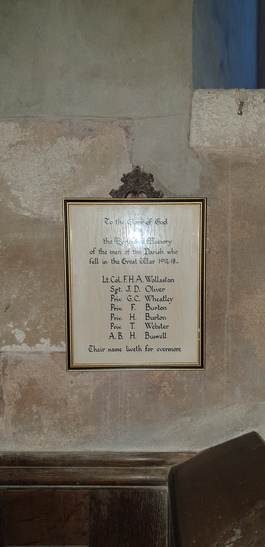 To the Glory of God
the Memory
of the men of the Parish who
fell in the Great War 1914-18.
Lt. Col. F.H.A. Wollaston
Sgt. J. D. Oliver
Priv. G.C. Wheatley
Priv. F. Burton
Priv. H. Burton
Priv. T. Webster
A. B. H. Buswell
Their name liveth for evermore